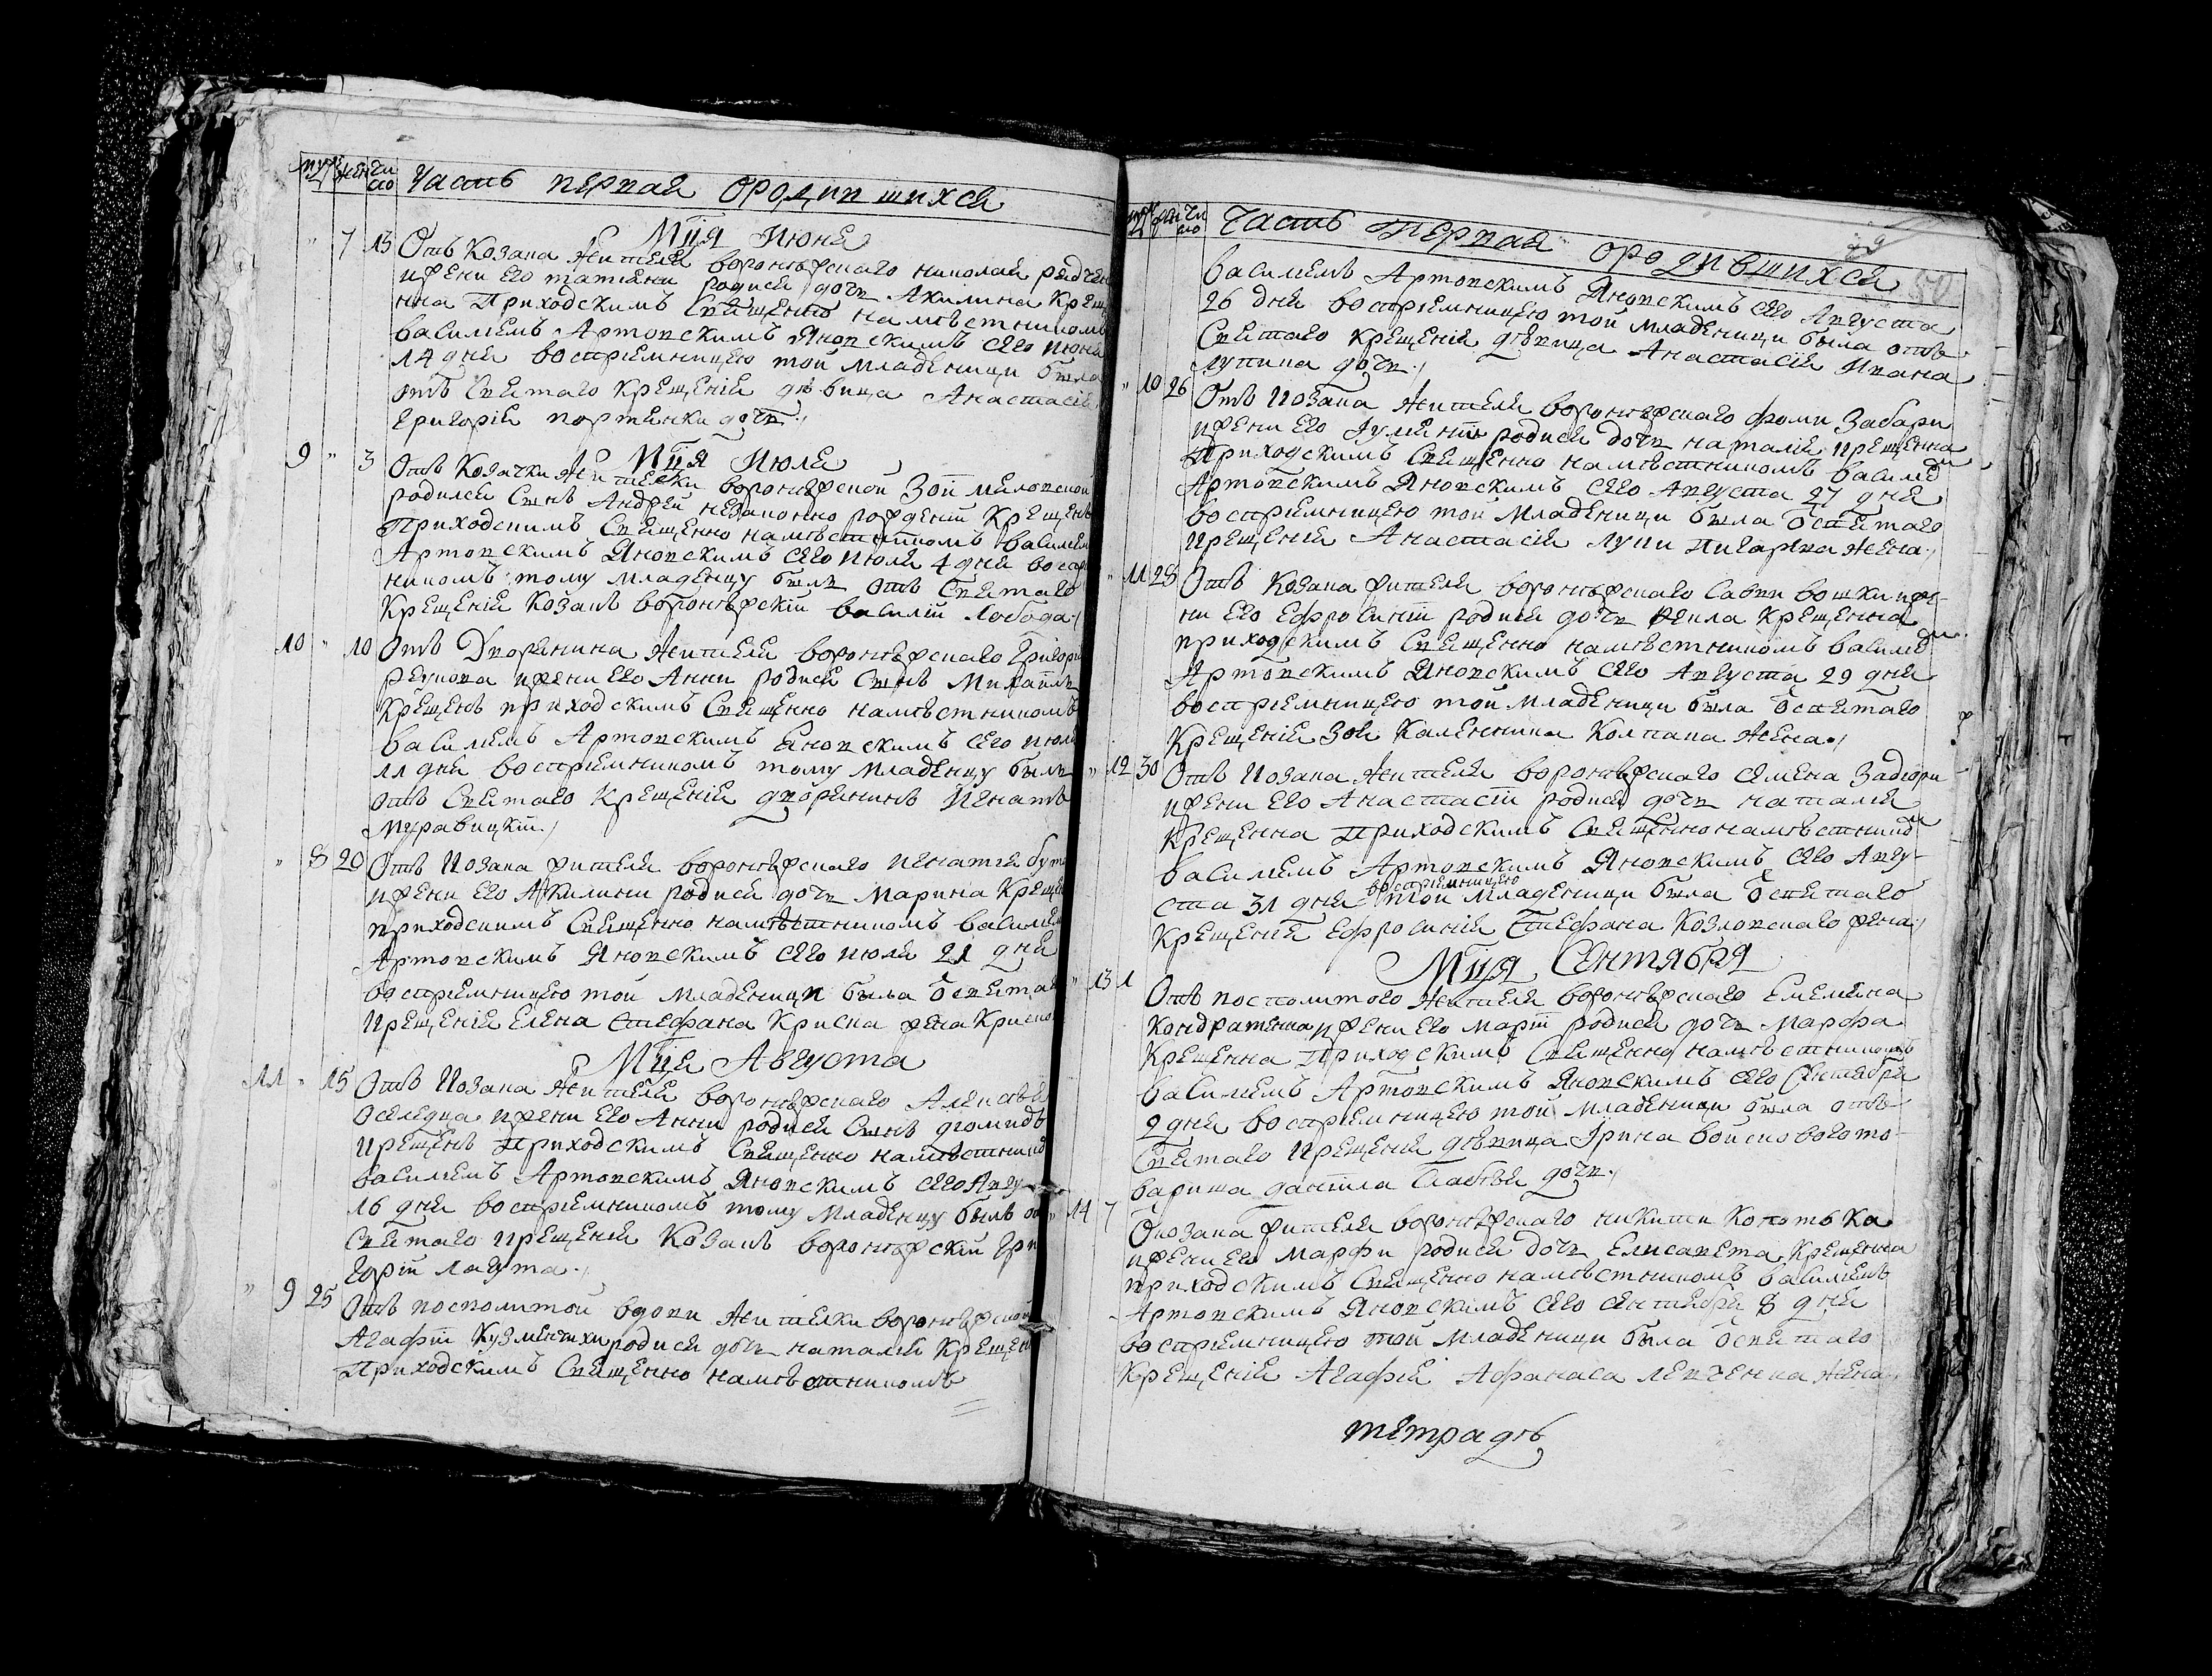 муж жен число Часть первая о родившихся
Мця Июня
" 7 13 Отъ козака жителя воронѣжскаго николая
и жени его татьяни родися дочь Акилина креще
нна приходскимъ священно намѣстникомъ
василіемъ Артовскимъ Яновскимъ сего июня
14 дня воспріемницею той младеници была
отъ святаго крещенія дѣвица Анастасія
григорія портянки дочь
Мця Июля
9 " 3 Отъ козачки жителки воронѣжской Зои миловской
родился сынъ Андрей незаконно рожденій крещенъ
приходскимъ священно намѣстникомъ василіем
Артовскимъ Яновскимъ сего июля 4 дня воспріе
никомъ тому младенцу былъ отъ святаго
крещенія козакъ воронѣжскій василій Лобода
10 " 10 Отъ дворянина жителя воронѣжскаго григорія
и жени его Анни родися сынъ Михаилъ
крещенъ приходскимъ священно намѣстникомъ
василіемъ Артовскимъ Яновскимъ сего июля
11 дня воспріемникомъ тому младенцу былъ
отъ святаго крещенія дворянинъ Игнатъ
муравицкій
" 8 20 Отъ козака жителя воронѣжскаго игнатія
и жени его Акилини родися дочь Марина креще
приходскимъ священно намѣстникомъ василіем
Артовскимъ Яновскимъ сего июля 21 дня
воспріемницею той младеници была ѿ святаго
крещенія Елена Стефана Криска жена
Мця Августа
11 " 15 Отъ козака жителя воронѣжскаго Алексѣя
оселедца и жени его Анни родися сынъ диомидъ
крещенъ приходскимъ священно намѣстникомъ
василіемъ Артовскимъ Яновскимъ сего Авгу
16 дня воспріемникомъ тому младенцу былъ от
святаго крещенія козакъ воронѣжскій гри
горій лагута
" 9 25 Отъ посполитой вдови жителки воронѣжской
Агафіи Кузменчихи родися дочь наталія крещен
приходскимъ священно намѣстникомъ
муж жен число Часть первая о родившихся
50
василіемъ Артовскимъ Яновскимъ сего Августа
26 дня воспріемницею той младеници была отъ
святаго крещенія дѣвица Анастасія Ивана
лупина дочь
" 10 26 Отъ козака жителя воронѣжскаго фоми Забари
и жени его Іуліяніи родися дочь наталія крещенна
приходскимъ священно намѣстникомъ василіем
Артовскимъ Яновскимъ сего Августа 27 дня
воспріемницею той младеници была ѿ святаго
крещенія Анастасія луки жена
" 11 28 Отъ козака жителя воронѣжскаго Савви вошки и же
ни его Ефросиніи родися дочь крещенна
приходскимъ священно намѣстникомъ василіем
Артовскимъ Яновскимъ сего Августа 29 дня
воспріемницею той младеници была ѿ святаго
крещенія Зоя Каленника Колпака жена
" 12 30 Отъ козака жителя воронѣжскаго семена Задори
и жени его Анастасіи родися дочь наталія
крещенна приходскимъ священно намѣстником
василіемъ Артовскимъ Яновскимъ сего Авгу
ста 31 дня воспріемницею той младеници была ѿ святаго
крещенія Ефросинія Стефана Козловскаго жена
Мця Сентября
" 13 1 Отъ посполитого жителя воронѣжскаго Емеляна
кондратенка и жени его маріи родися дочь Марфа
крещенна приходскимъ священно намѣстникомъ
василіемъ Артовскимъ Яновскимъ сего Сентября
2 дня воспріемницею той младеници была отъ
святаго крещенія дѣвица Ірина войсковаго то
вариша даніила дочь
" 14 7 Ѿ козака жителя воронѣжскаго никити
и жени его Марфи родися дочь Елисавета крещенна
приходскимъ священно намѣстникомъ василіемъ
Артовскимъ Яновскимъ сего сентября 8 дня
воспріемницею той младеници была ѿ святаго
крещенія Агафія Афанаса левченка жена
тетрадь